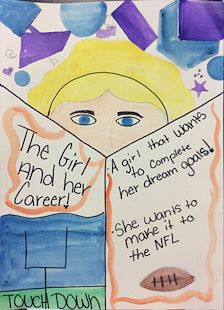 The Girl
And her
Career!
• A girl that wants
to complete
her dream goals!
• She wants to
make it to
the NFL
TOUCH DOWN